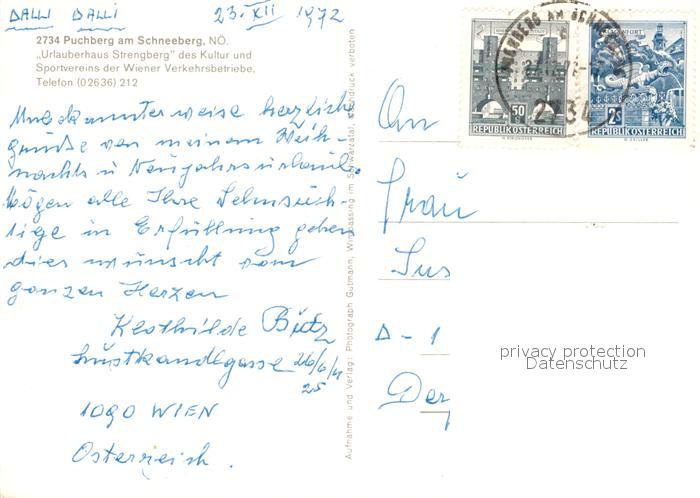 DALLI DALLI 23. XII 1972
2734 Puchberg am Schneeberg, NÖ.
„Urlauberhaus Strengberg" des Kultur und
Sportvereins der Wiener Verkehrsbetriebe,
Telefon (02636) 212
Unbekannterweise herzliche
grüße von meinem Weih-
nachts u Neujahrsurlaub.
Mögen alle Ihre Sehnsüch-
tige in Erfüllung gehen
dies wünscht vom
ganzen Herzen
Klothilde Butz
Lustkandlgasse 26/6/
25
1090 WIEN
Österreich.
Aufnahme und Verlag: Photograph Gutmann, Wimpassing im Schwarzatal, Nachdruck verboten
50
REPUBLIK ÖSTERREICH
2S
REPUBLIK ÖSTERREICH
PUCHBERG AM SCHNEEBERG
2734
An
Frau
Sus
D - 1
Der
privacy protection
Datenschutz